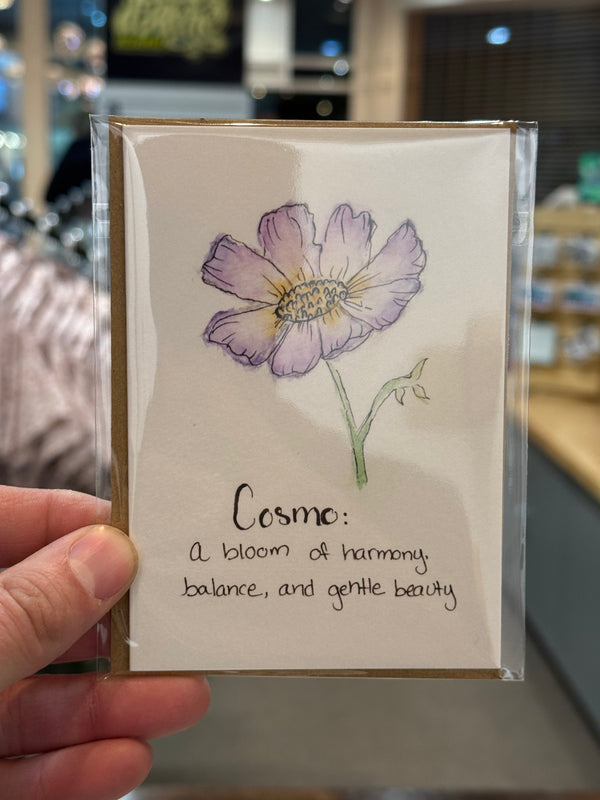 Cosmo:
a bloom of harmony.
balance, and gentle beauty